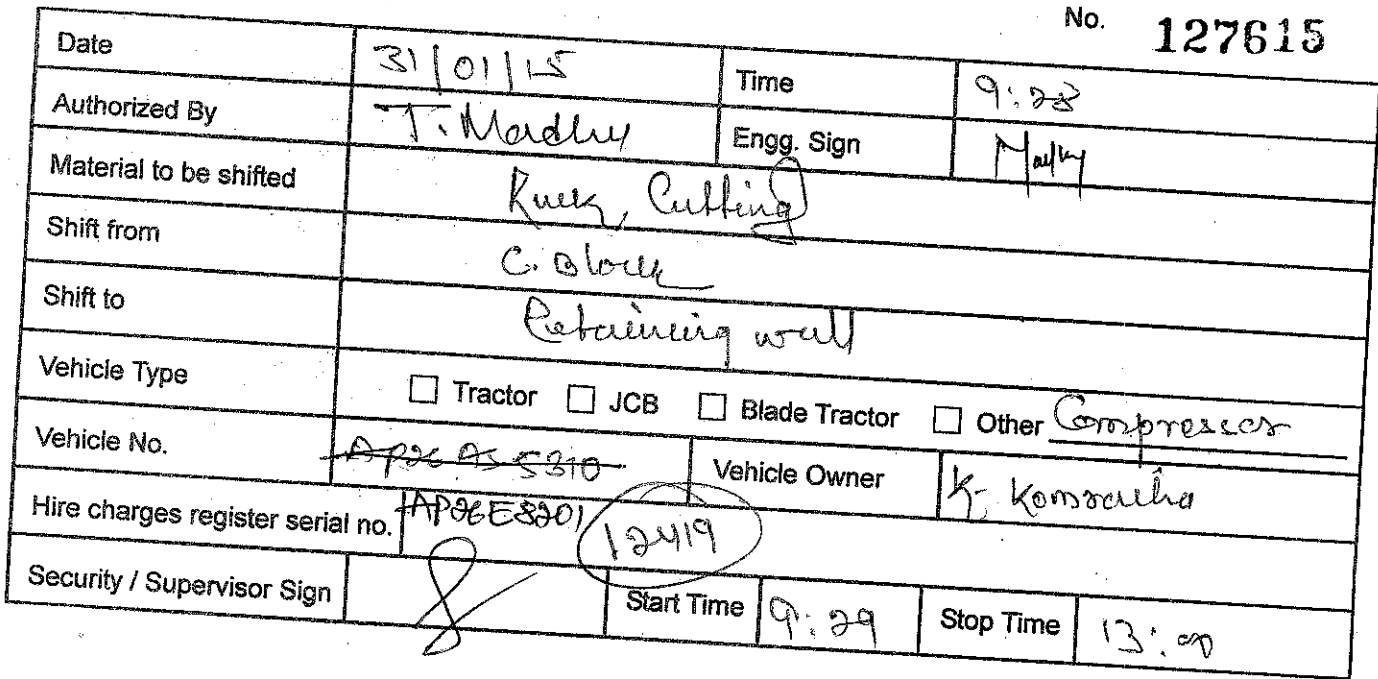 No. 127615
Date 31/01/15 Time 9:28
Authorized By T. Madhu Engg. Sign
Material to be shifted Cutting
Shift from C. Block
Shift to Retaining wall
Vehicle Type Tractor JCB Blade Tractor Other Compressor
Vehicle No. AP26 AS 5310 Vehicle Owner K.
Hire charges register serial no. AP26E8201 12419
Security / Supervisor Sign Start Time 9:29 Stop Time 13:00